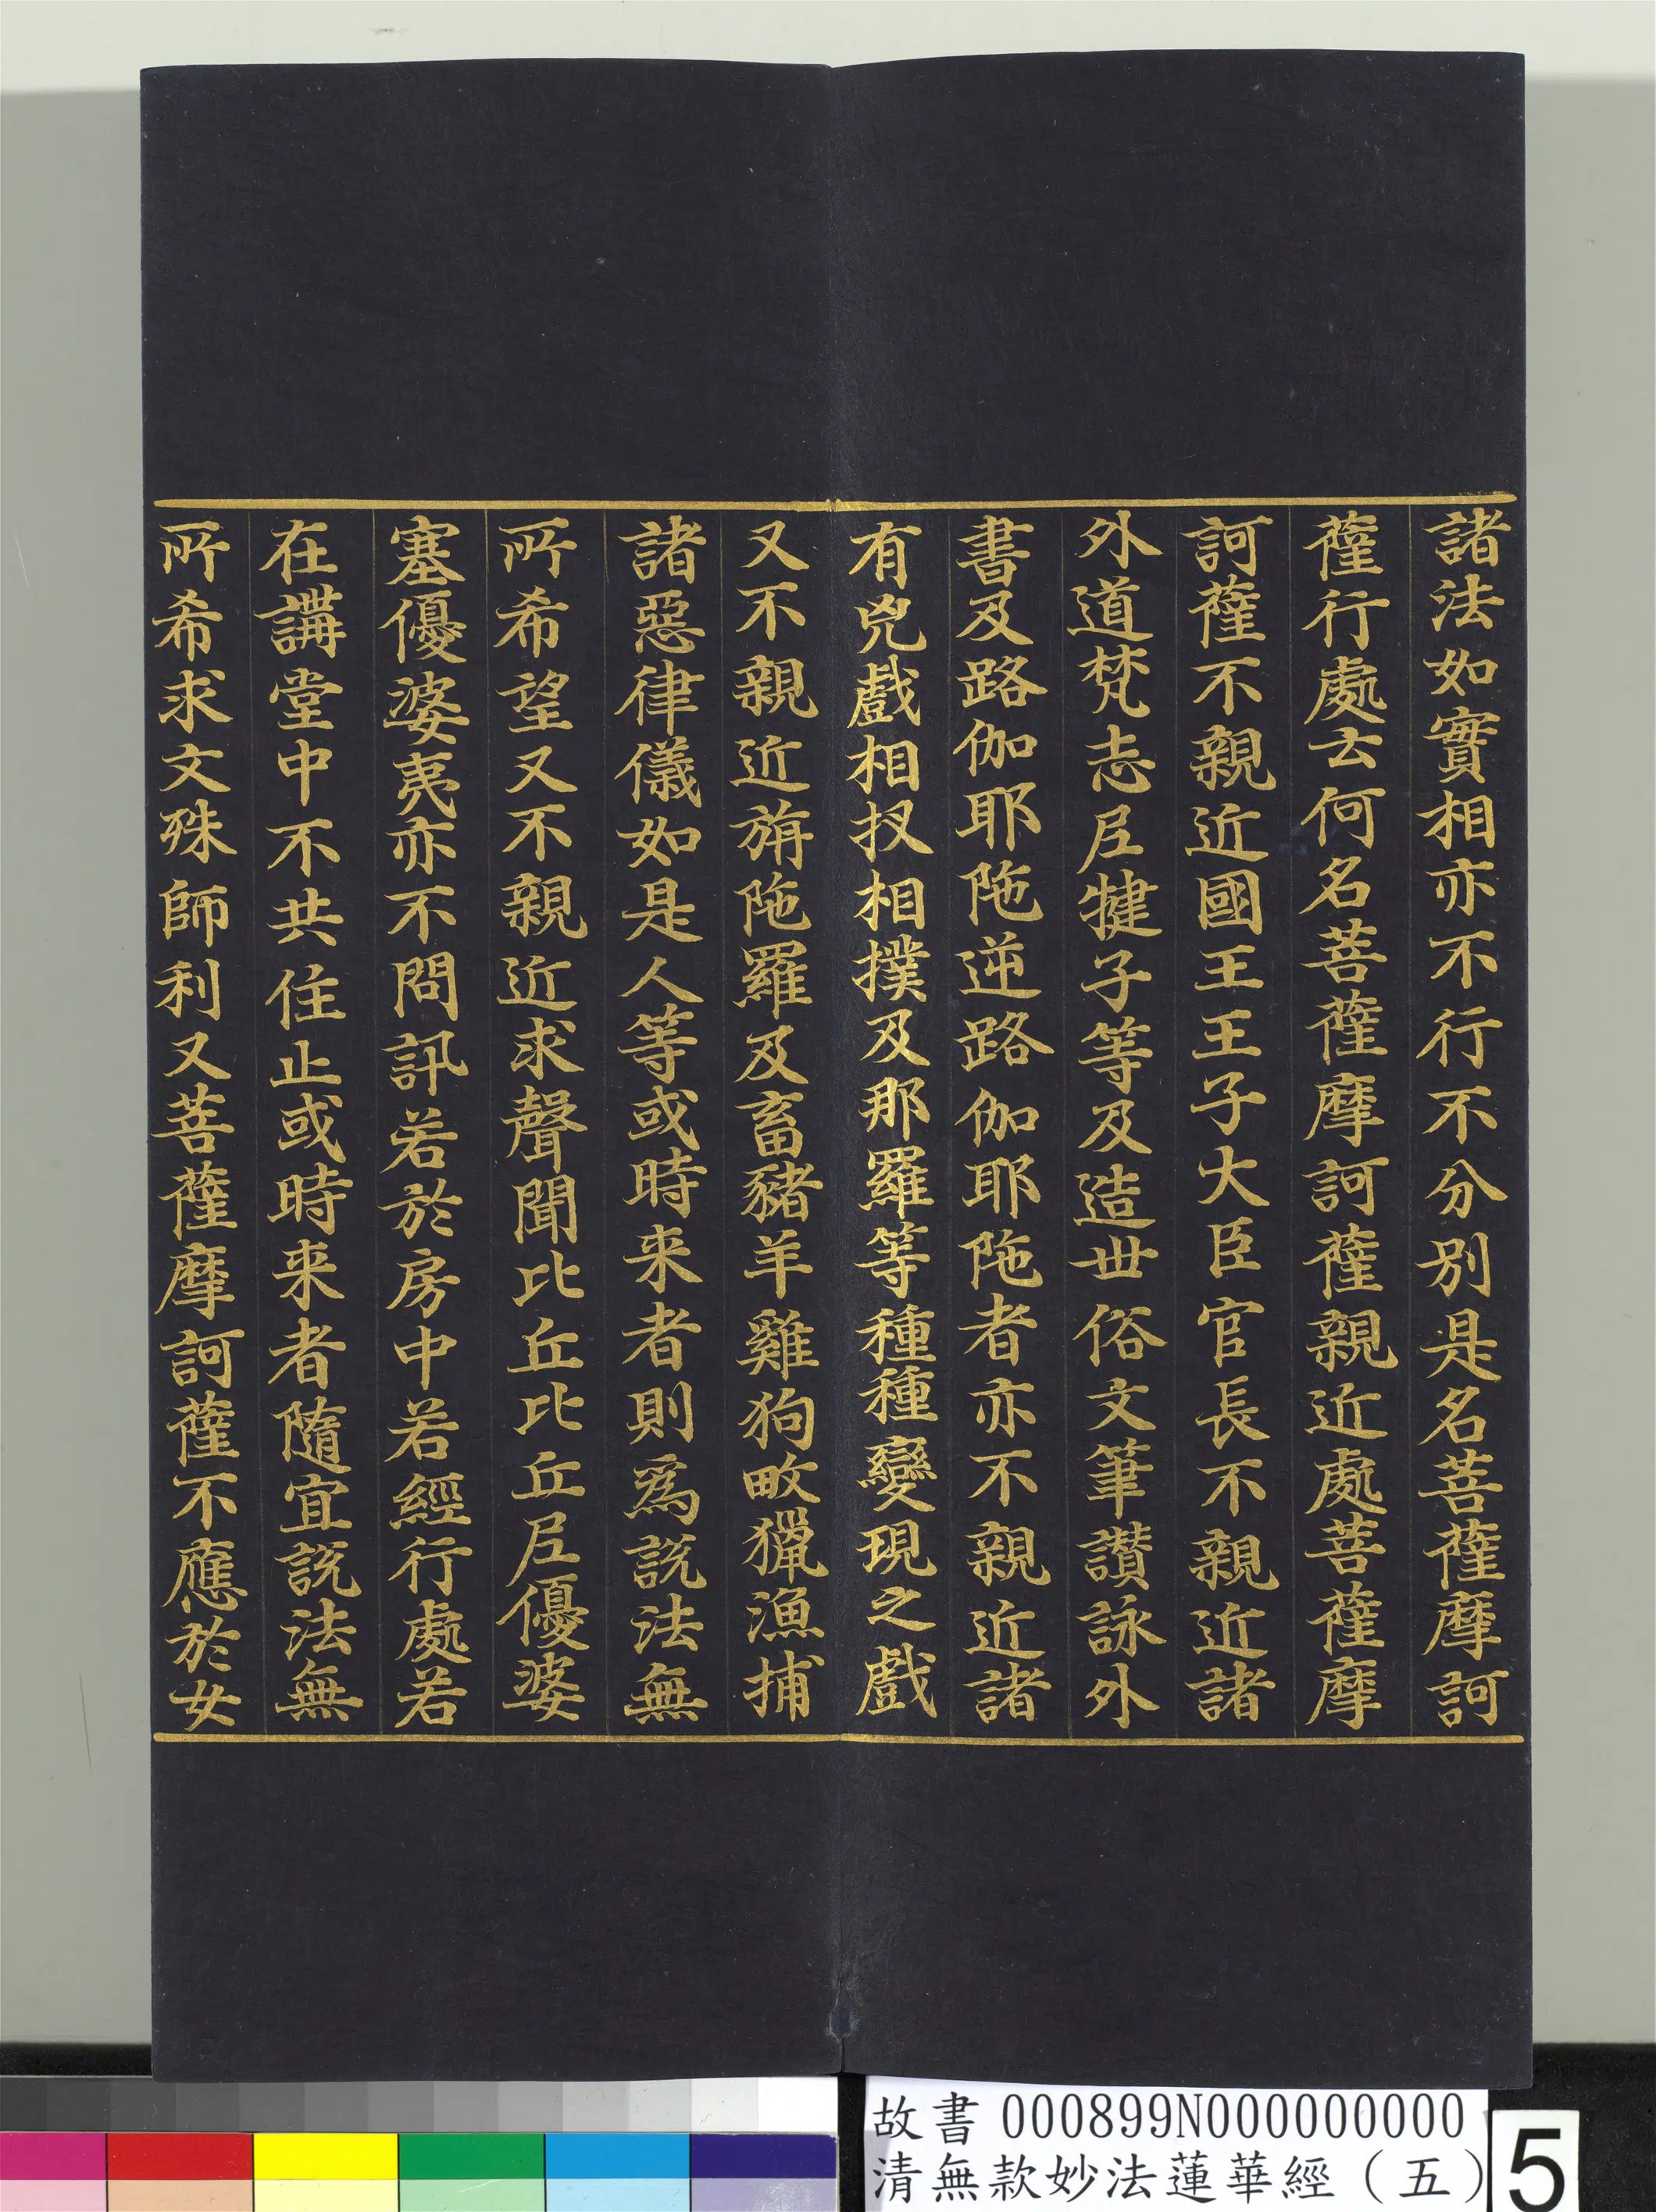 諸法如實相亦不行不分別是名菩薩摩訶
薩行處云何名菩薩摩訶薩親近處菩薩摩
訶薩不親近國王王子大臣官長不親近諸
外道梵志尼犍子等及造世俗文筆讚詠外
書及路伽耶陁逆路伽耶陁者亦不親近諸
有兇戲相扠相撲及那羅等種種變現之戲
又不親近旃陁羅及畜豬羊雞狗畋獵漁捕
諸惡律儀如是人等或時来者則為說法無
所希望又不親近求聲聞比丘比丘尼優婆
塞優婆夷亦不問訊若於房中若經行處若
在講堂中不共住止或時来者隨宜說法無
所希求文殊師利又菩薩摩訶薩不應於女
故書 000899N000000000
清無款妙法蓮華經（五）
5